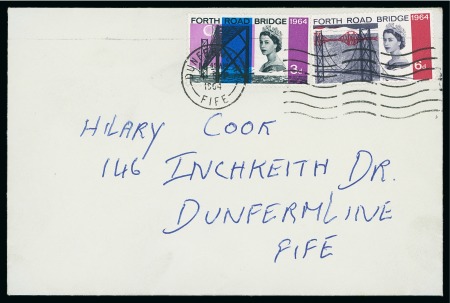 FORTH ROAD BRIDGE 1964 FORTH ROAD BRIDGE 1964
3d 6d
DUNFERMLINE
1964
FIFE
HILARY COOK
146 INCHKEITH DR.
DUNFERMLINE
FIFE